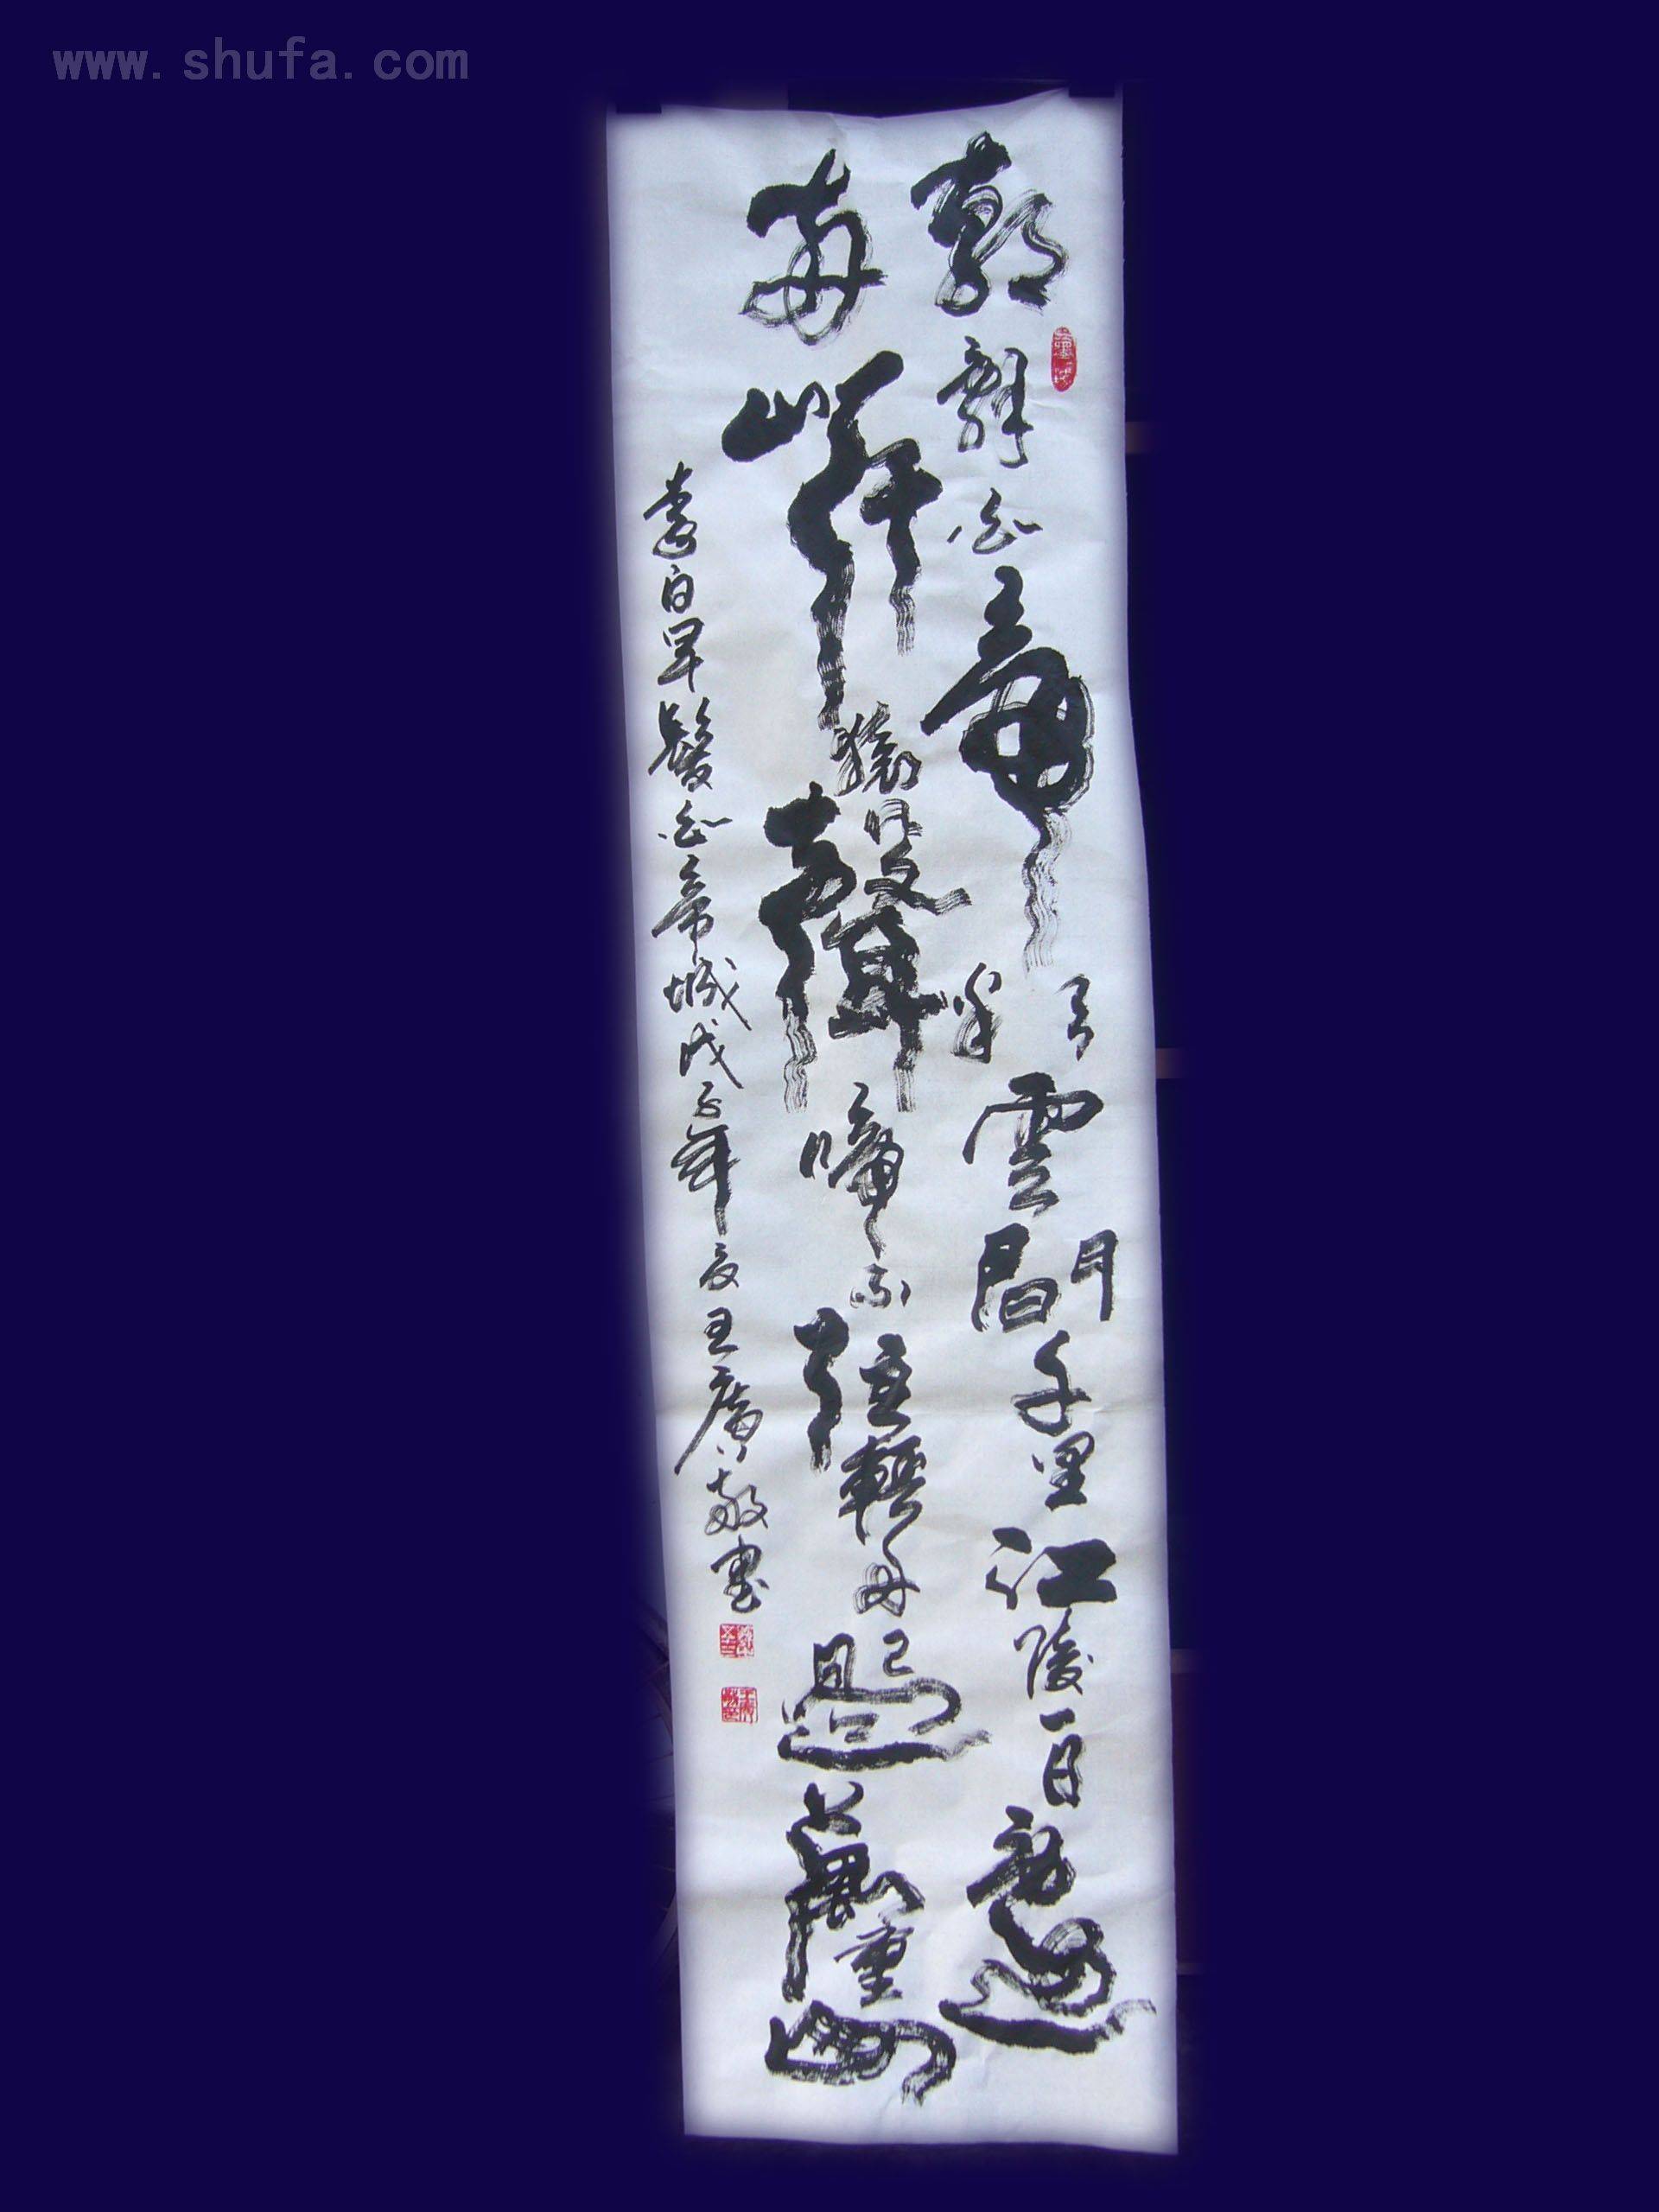 www.shufa.com
朝辭白帝彩雲間千里江陵一日還
两岸猿聲啼不住輕舟已過萬重山
李白早發白帝城戊子年夏王廣敬書